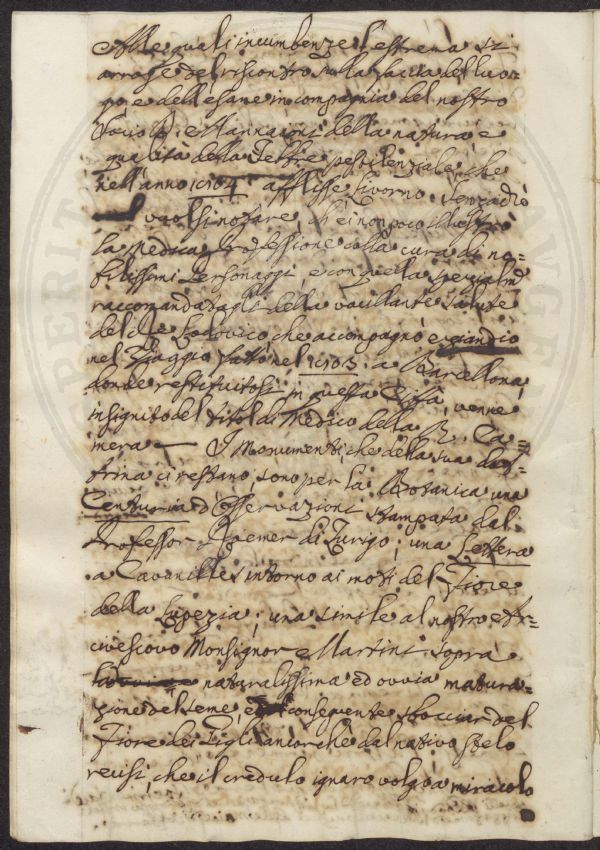 Alle quali incumbenze l'estrema si
arroge del riscontro sulla faccia del luo=
go e dell'esame in compagnia del nostro
Socio Mannaioni della natura e
qualità della Febbre pestilenziale, che
nell'anno 1804 afflisse Livorno. Senza ciò
vuolsi notare, ch'ei non poco illustrò
la Medica Professione colla cura di no=
bilissimi Personaggi, e con quella
raccomandatagli della vacillante salute
del Re Lodovico, che accompagnò eziandio
nel Viaggio fatto nel a Barcellona,
donde restituitosi in questa Città, venne
insignito del titol di Medico della R. Ca=
mera — I Monumenti che della sua dot=
trina ci restano sono per la Botanica una
Centuria d'Osservazioni stampata dal
Professor Roemer di Zurigo; una Lettera
a Cavanilles intorno ai moti del Fiore
della Lopezia; una simile al nostro Ar=
civescovo Monsignor Martini sopra
naturalissima ed ovvia matura=
zione del seme, e conseguente sbocciar del
Fiore dei Gigli ancorche dal nativo stelo
recisi, che il credulo ignaro volgo a miracolo